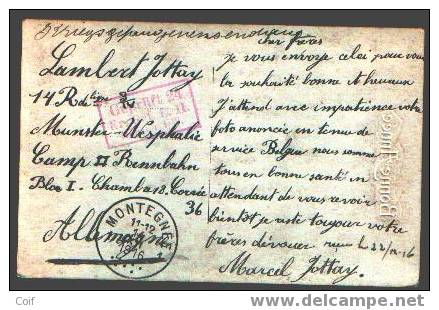 Kriegsgefangenensendung
Lambert Jottay
14 Rd
Munster-Wesphalie
Camp II Rennbahn
Bloc I - Chamba 18. Corvée
36
Allemagne
MONTEGNÉE
11-12
1916
cher frères
je vous envoye celci pour vous
la souhaité bonne et heureux
J'attend avec impatience votre
foto anoncie en tenu de
service Belgen nous somme
tous en bonne santé in
attendant de vous revoir
bientôt je reste toujour votre
frères dévouer
22/12-16
Marcel Jottay.
Coif
www.delcampe.net